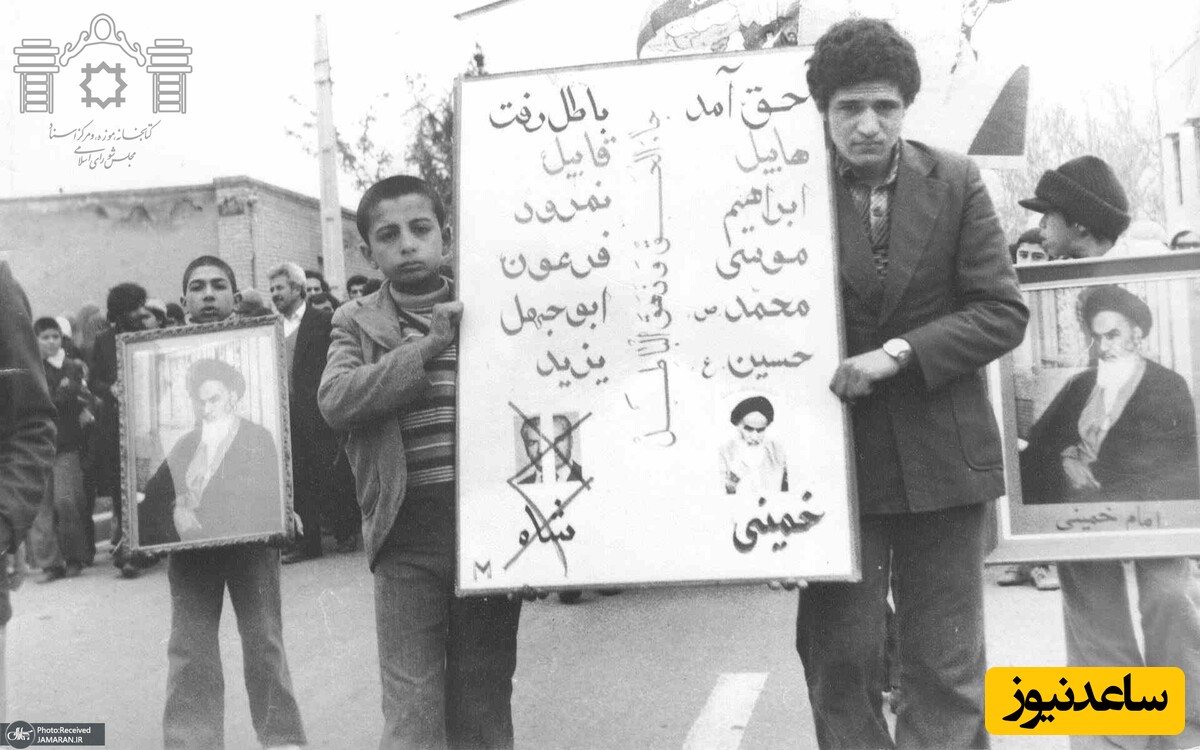 کتابخانه، موزه و مرکز اسناد
مجلس شورای اسلامی
حق آمد
باطل رفت
هابیل
قابیل
ابراهیم
نمرود
موسی
فرعون
محمد ص
ابوجهل
حسین ع
یزید
خمینی
شاه
جاء الحق و زهق الباطل
M
امام خمینی
ساعدنیوز
Photo:Received
JAMARAN.IR